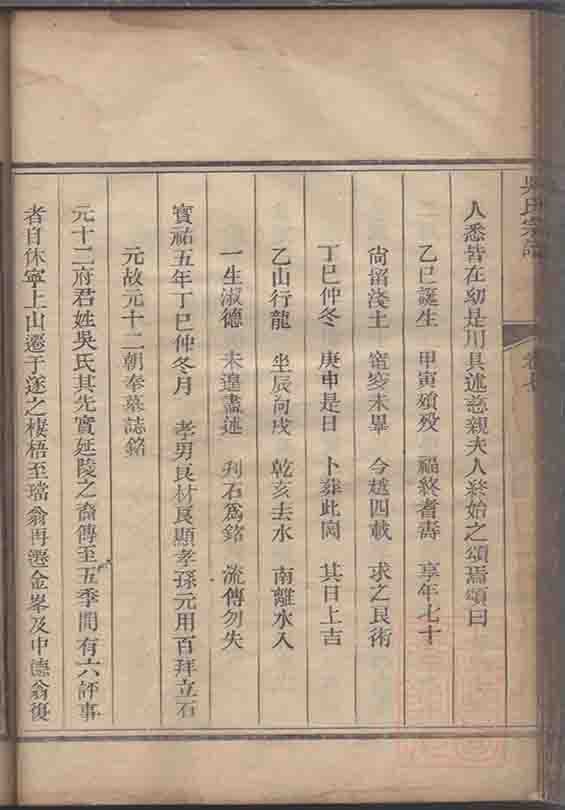 吳氏宗譜 卷七
人悉皆在幼是用具述慈親夫人終始之頌焉頌曰
乙巳誕生 甲寅殞歿 福終耆壽 享年七十
尚留淺土 窀穸未畢 今越四載 求之良術
丁巳仲冬 庚申是日 卜葬此岡 其日上吉
乙山行龍 坐辰向戌 乾亥去水 南離水入
一生淑德 未遑盡述 刋石爲銘 流傳勿失
寳祐五年丁巳仲冬月 孝男良材良顯孝孫元用百拜立石
元故元十二朝奉墓誌銘
元十二府君姓吳氏其先實延陵之裔傳至五季間有六評事
者自休寧上山遷于遂之棲梧至璿翁再遷金峯及中德翁復